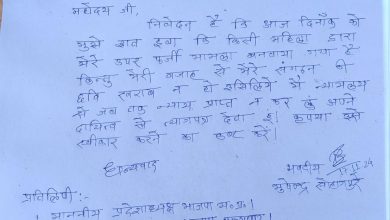 महोदय जी,
निवेदन है कि आज दिनाँक को
मुझे ज्ञात हुआ कि किसी महिला द्वारा
मेरे ऊपर फर्जी मामला बनवाया गया है
किन्तु मेरी वजह से मेरे संगठन की
छवि खराब न हो इसलिये मैं न्यायालय
से जब तक न्याय प्राप्त न कर लूं अपने
दायित्व से त्यागपत्र देता हूं। कृपया इसे
स्वीकार करने का कष्ट करें।
धन्यवाद
भवदीय
भूपेन्द्र
प्रतिलिपी:-
माननीय प्रदेशाध्यक्ष भाजपा म.प्र.।